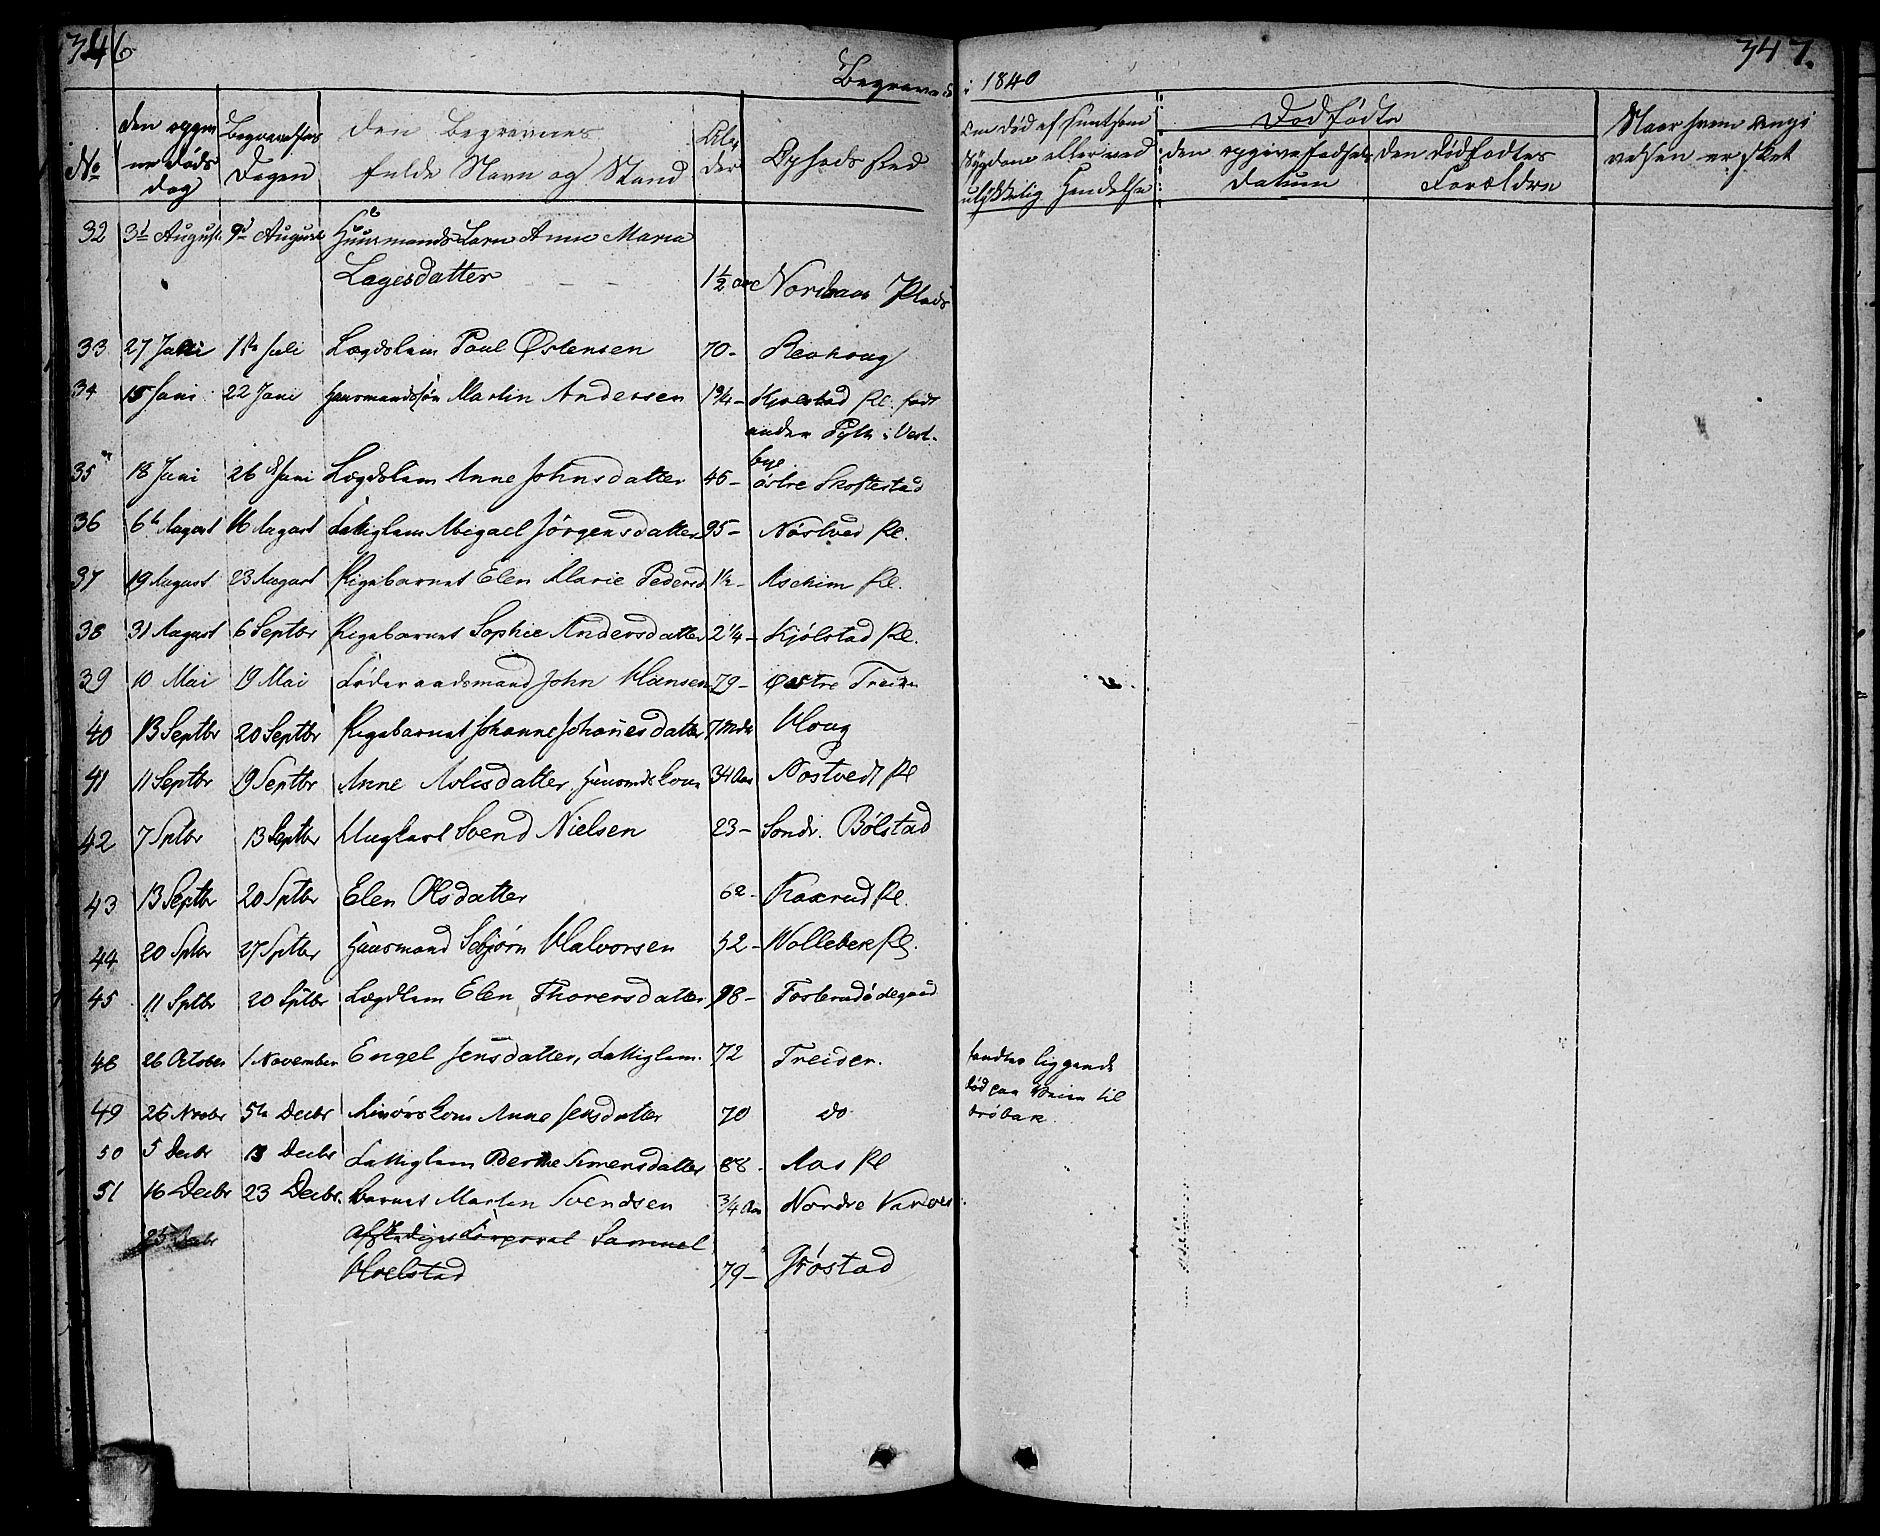 346
347.
Begravede i 1840
No
den opgivne Døds dag
Begravelses Dagen
Den Begravnes fulde Navn og Stand
Alder
Opholdssted
Om død af smitsom Sygdom eller ved ulykkelig Hendelse
Dødfødte
den opgivne fødsels Datum
den dødfødtes Forældre
Naar hvem angivelsen er sket
32 3d August 9d August Huusmands Barn Anne Maria
Lagesdatter 1½ aar Nordaas Plads
33 27 Juni 1ste Juli Lægdslem Poul Østensen 70- Revhoug
34 15 Juni 22 Juni Huusmandssøn Martin Andersen 1¾- Kjølstad Pl. født
under Pytt i Vest-
bye
35 18 Juni 26 Juni Lægdslem Anne Johnsdatter 45- østre Skoftestad
36 6te August 16 August Fattiglem Abigael Jørgensdatter 95- Nøstved Pl.
37 19 August 23 August Pigebarnet Elen Marie Pedersd 1½- Aschim Pl.
38 31 August 6 Septbr Pigebarnet Sophie Andersdatter 2¼- Kjølstad Pl.
39 10 Mai 19 Mai Føderaadsmand John Hansen 79- Østre Treider
40 13 Septbr 20 Septbr Pigebarnet Johanne Johanesdatter 7 Mdr Houg
41 11 Septbr 19 Septbr Anne Asludatter Huusmdskone 34 Aar Nostvedt Pl
42 7 Sptbr 13 Septbr Ungkarl Svend Nielsen 23- Sondr. Bølstad
43 13 Septbr 20 Sptbr Elen Olsdatter 62- Kaxrud Pl.
44 20 Sptbr 27 Sptbr Huusmand Sebjørn Halvorsen 52- Wollebek Pl.
45 11 Sptbr 20 Sptbr Lægdslem Elen Thoversdatter 98- Fosterudødegaard
48 26 October 1 November Engel Jensdatter, Fattiglem. 72 Treider. fandtes liggende
død paa Veien til
Drøbak
49 26 Novbr 5te Decbr Anne Jensdatter 70 do
50 5 Decbr 13 Decbr Fattiglem Berthe Simensdatter 88- Aas Pl
51 16 Decbr 23 Decbr. Barnet Martin Svendsen ¾ Aar Nordre
25 Decbr Afskediget Corporal Samuel
Hoelstad 79- Grøstad